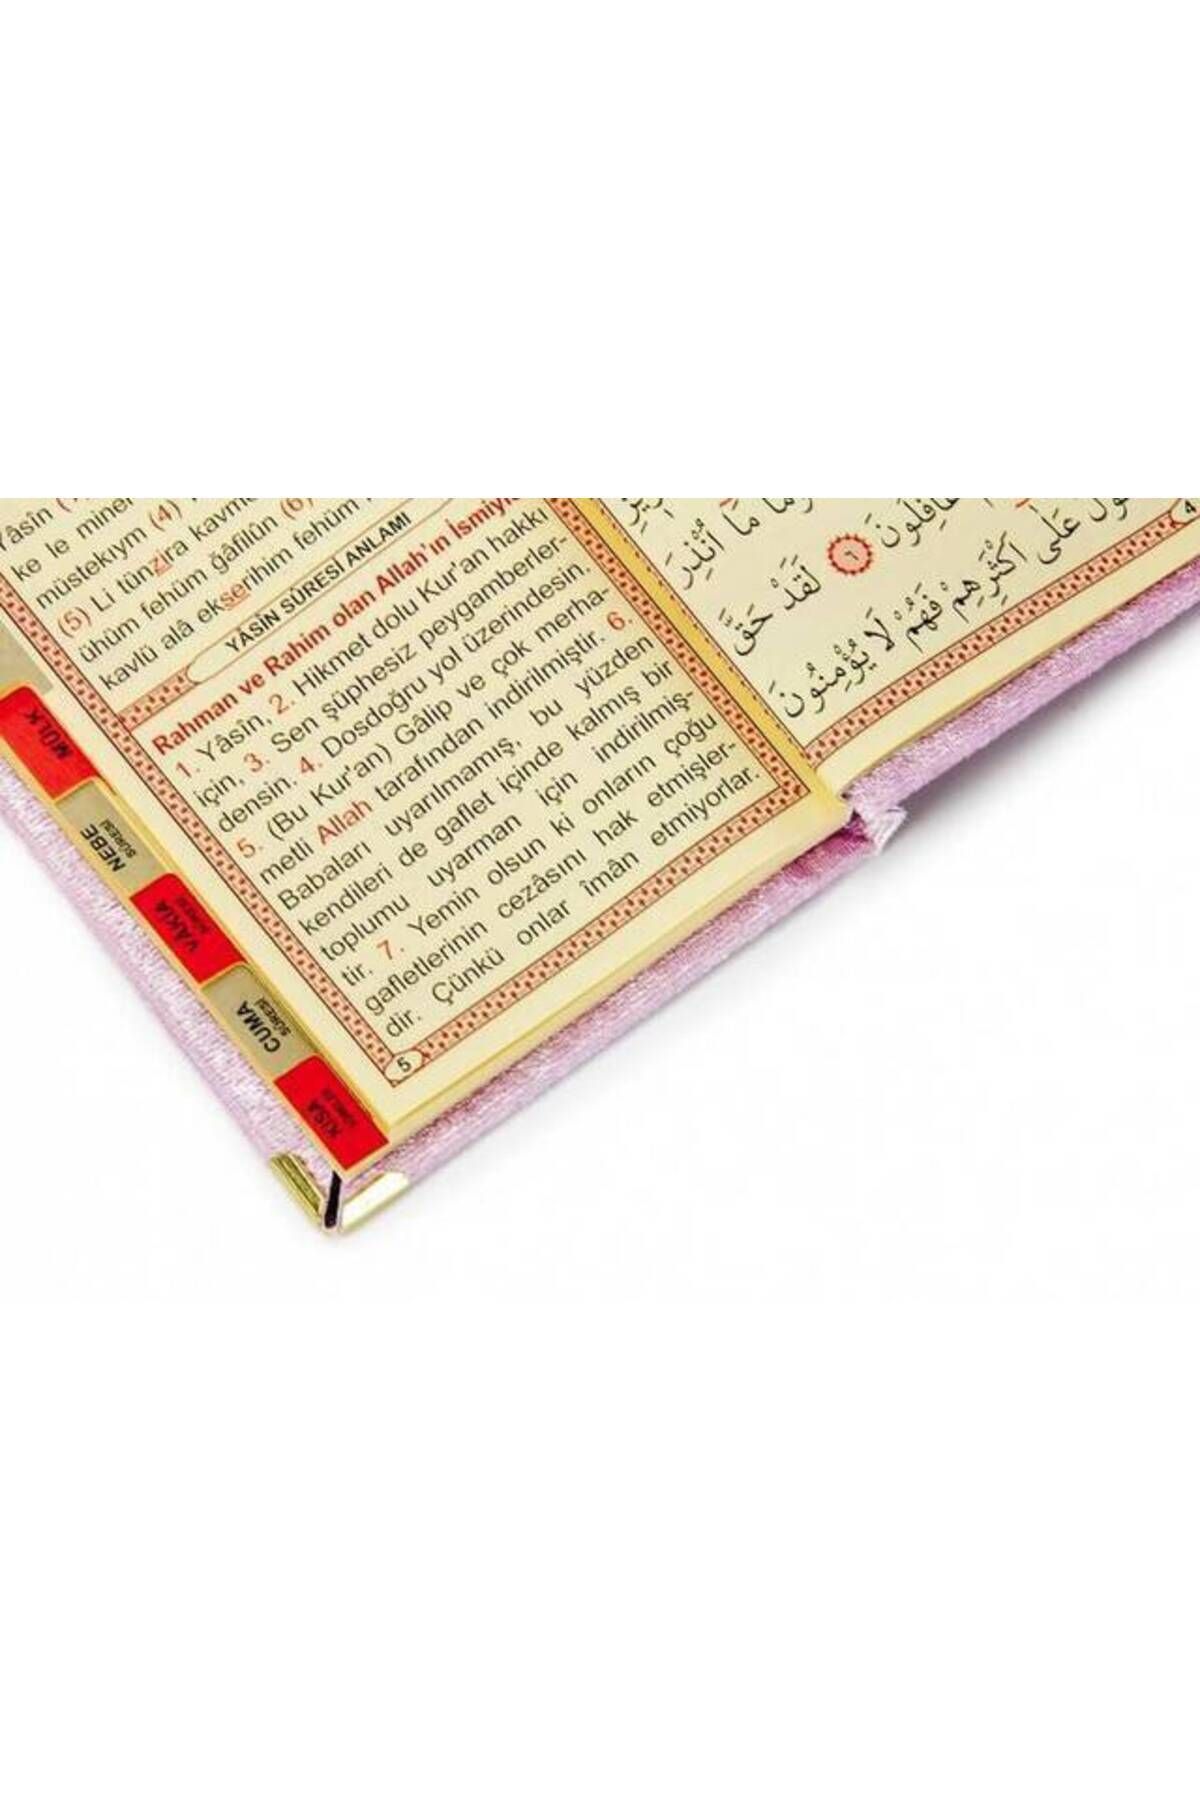 Yâsîn
ke le miner
müstekıym (4)
(5) Li tünzira kavme
ühüm fehüm ğâfilûn (6)
kavlü alâ ekserihim fehüm
YÂSİN SÛRESİ ANLAMI
Rahman ve Rahim olan Allah'ın İsmiyle
1. Yâsîn, 2. Hikmet dolu Kur'an hakkı
için, 3. Sen şüphesiz peygamberler-
densin. 4. Dosdoğru yol üzerindesin.
5. (Bu Kur'an) Gâlip ve çok merha-
metli Allah tarafından indirilmiştir. 6.
Babaları uyarılmamış, bu yüzden
kendileri de gaflet içinde kalmış bir
toplumu uyarman için indirilmiş-
tir. 7. Yemin olsun ki onların çoğu
gafletlerinin cezâsını hak etmişler-
dir. Çünkü onlar îmân etmiyorlar.
5
MÜLK
NEBE
SÛRESİ
VAKIA
SÛRESİ
CUMA
SÛRESİ
KISA
مَا أُنْذِرَ
غَافِلُونَ ٦ لَقَدْ حَقَّ
عَلَى أَكْثَرِهِمْ فَهُمْ لَا يُؤْمِنُونَ
4